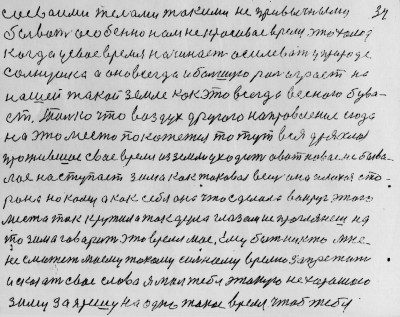 своеими телами такими не привычными 34
бывать особенно нам не красивае время это холод
когда цевае время начинает осилевать у природе
солнушка а оно всегда и большую рол играет на
нашей такой земле как это всегда весною бува-
ет. Только что воздух другого направления сюда
на это место покажется то тут вся дряхлая
прожившие свае время из земли уходить а вот новае не быва-
лае наступает зима как таковая всему она плохая сто-
рона но кому а как себя она что сделала вокруг этого
места так крутила так дула глазами не проглянеш на
то зима говарить это время мае, Ему быть никто мне
не сможет моему такому сильному время запретить
и сказать свае слова я тебя этакую нехарошаю
зиму за
на одно такое время чтоб тебя